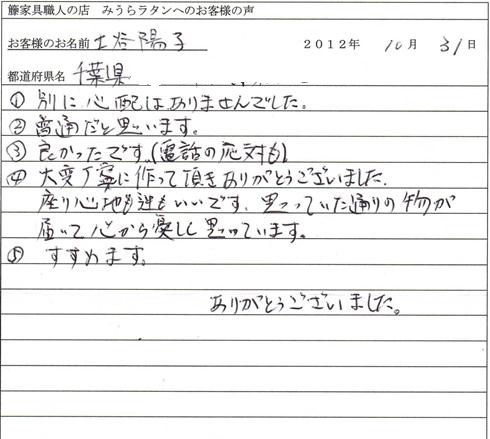 籐家具職人の店　みうらラタンへのお客様の声
お客様のお名前 土谷陽子　2012年 10月 31日
都道府県名 千葉県
① 別に心配はありませんでした。
② 普通だと思います。
③ 良かったです。(電話の応対も)
④ 大変丁寧に作って頂きありがとうございました。
座り心地もいいです、思っていた通りの物が
届いて心から嬉しく思っています。
⑤ すすめます。
ありがとうございました。